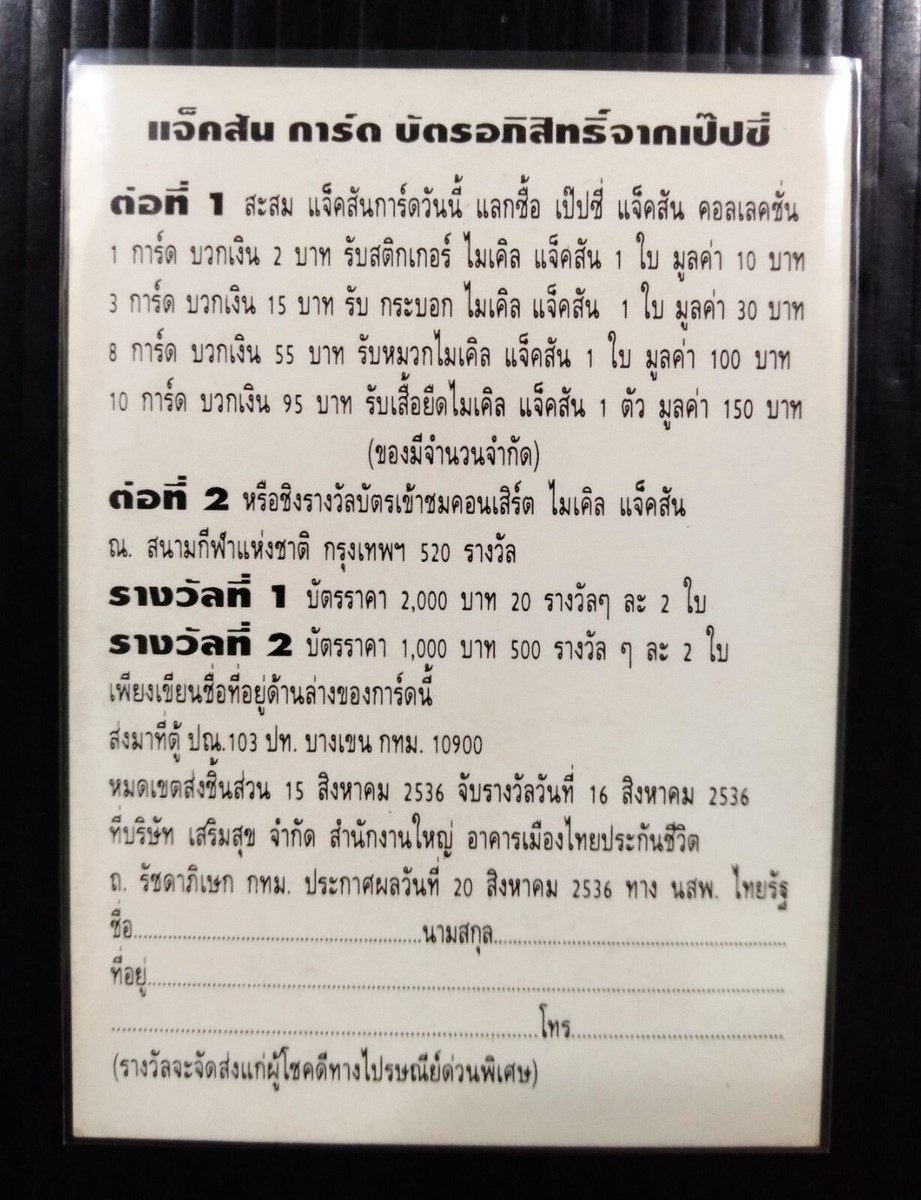 แจ็คสัน การ์ด บัตรอภิสิทธิ์จากเป๊ปซี่
ต่อที่ 1 สะสม แจ็คสันการ์ดวันนี้ แลกซื้อ เป๊ปซี่ แจ็คสัน คอลเลคชั่น
1 การ์ด บวกเงิน 2 บาท รับสติกเกอร์ ไมเคิล แจ็คสัน 1 ใบ มูลค่า 10 บาท
3 การ์ด บวกเงิน 15 บาท รับ กระบอก ไมเคิล แจ็คสัน 1 ใบ มูลค่า 30 บาท
8 การ์ด บวกเงิน 55 บาท รับหมวกไมเคิล แจ็คสัน 1 ใบ มูลค่า 100 บาท
10 การ์ด บวกเงิน 95 บาท รับเสื้อยืดไมเคิล แจ็คสัน 1 ตัว มูลค่า 150 บาท
(ของมีจำนวนจำกัด)
ต่อที่ 2 หรือชิงรางวัลบัตรเข้าชมคอนเสิร์ต ไมเคิล แจ็คสัน
ณ. สนามกีฬาแห่งชาติ กรุงเทพฯ 520 รางวัล
รางวัลที่ 1 บัตรราคา 2,000 บาท 20 รางวัลๆ ละ 2 ใบ
รางวัลที่ 2 บัตรราคา 1,000 บาท 500 รางวัล ๆ ละ 2 ใบ
เพียงเขียนชื่อที่อยู่ด้านล่างของการ์ดนี้
ส่งมาที่ตู้ ปณ.103 ปท. บางเขน กทม. 10900
หมดเขตส่งชิ้นส่วน 15 สิงหาคม 2536 จับรางวัลวันที่ 16 สิงหาคม 2536
ที่บริษัท เสริมสุข จำกัด สำนักงานใหญ่ อาคารเมืองไทยประกันชีวิต
ถ. รัชดาภิเษก กทม. ประกาศผลวันที่ 20 สิงหาคม 2536 ทาง นสพ. ไทยรัฐ
ชื่อ..............................นามสกุล..............................
ที่อยู่............................................................
........................................โทร..............................
(รางวัลจะจัดส่งแก่ผู้โชคดีทางไปรษณีย์ด่วนพิเศษ)